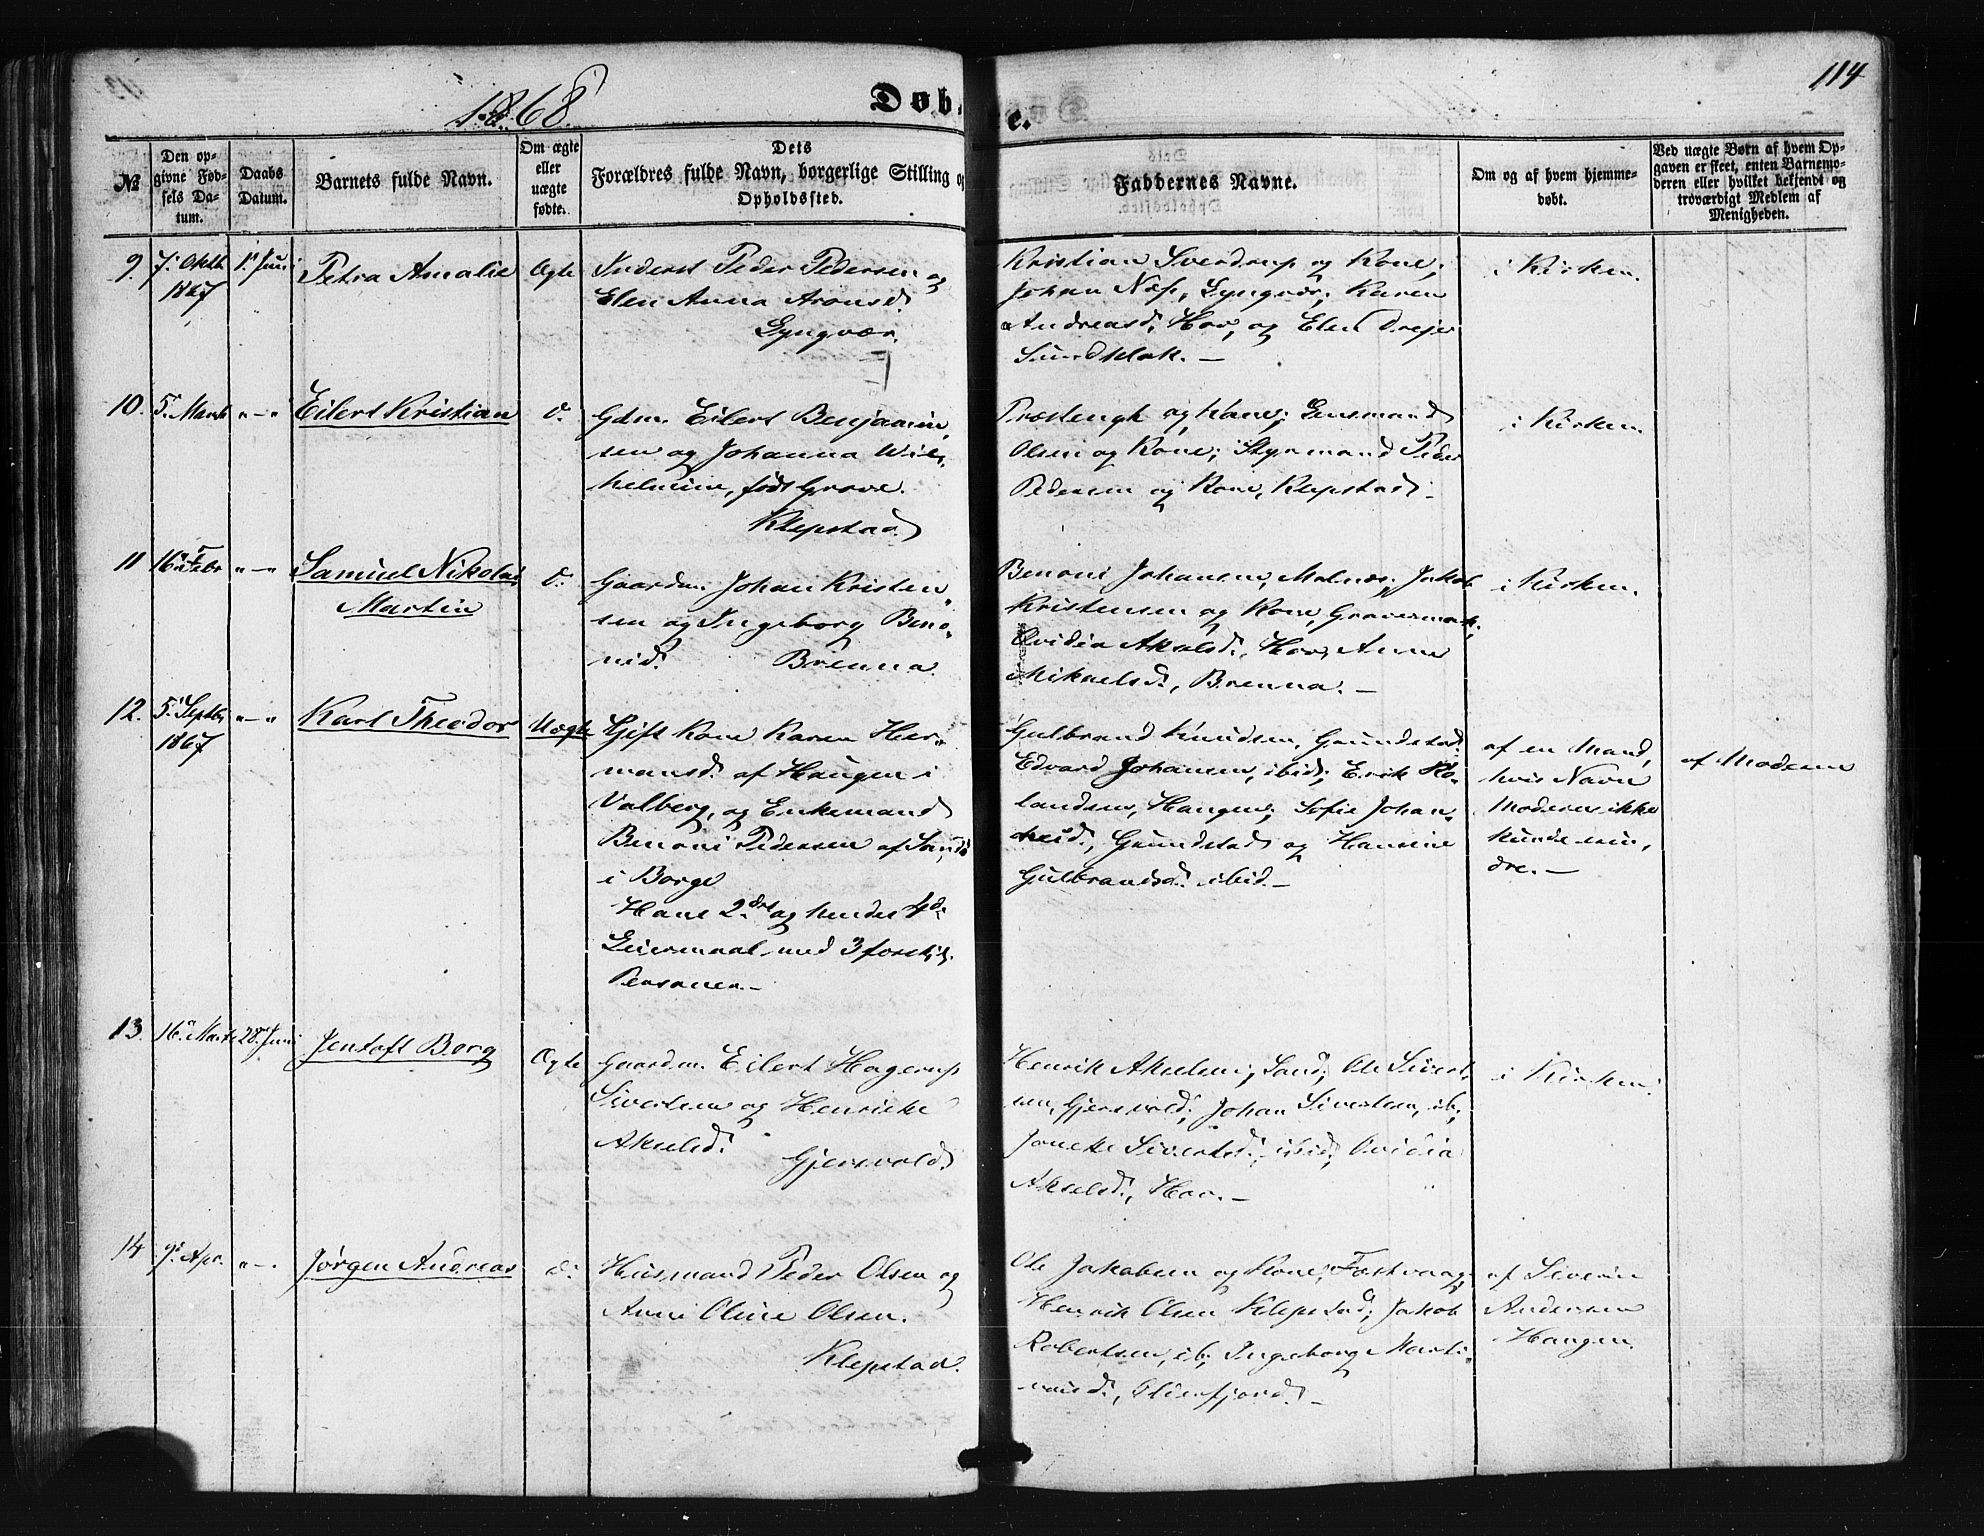 1868.
Døbte.
114
№
Den opgivne Fødsels Datum.
Daabs Datum.
Barnets fulde Navn.
Om ægte eller uægte fødte.
Dets Forældres fulde Navn, borgerlige Stilling og Opholdssted.
Faddernes Navne.
Om og af hvem hjemmedøbt.
Ved uægte Børn af hvem Opgaven er skeet, enten Barnemoderen eller hvilket bekjendt og troværdigt Medlem af Menigheden.
9. 7. Oktb. 1ste Juni Petra Amalie Ægte Inderst Peder Pedersen og
1867 Elen Anna Aronsd.
Lyngvær.
Kristian Sverdrup og Kone;
Johan Næss, Lyngvær; Karen
Andreasd. Hov, og Elen Drejer
Sundklak. —
i Kirken.
10. 5. Marts „—„ Eilert Kristian d. Gdm. Eilert Benjamin-
sen og Johanna Wil-
helmine, født Grove.
Klepstad
og Kone; Lensmand
Olsen og Kone; Styrmand Peder
Pedersen og Kone, Klepstad. —
i Kirken.
11 16. Febr „—„ Samuel Nikolai d. Gaardm. Johan Kristen-
Martin
sen og Ingeborg Beno-
nid. Brenna.
Benoni Johansen, Molnæs; Jakob
Kristensen og Kone, Gravermark;
Ovidia Akselsd. Hov, Anne
Mikaelsd., Brenna. —
i Kirken.
12. 5. Septbr. „—„ Karl Theodor Uægte Gift Kone Karen Her-
1867
mansd. af Haugen i
Valberg, og Enkemand
Benoni Pedersen af Sand
i Borge
Hans 2det og hendes 4de
Leiermaal med 3 forskj.
Personer. —
Gulbrand Knudsen, Grundstad;
Edvard Johansen, ibid; Erik Ro-
landsen, Haugen; Sofie Johan-
nesd., Grundstad og Hansine
Gulbrandsd. ibid. —
af en Mand,
hvis Navn
Moderen ikke
kunde erin-
dre. —
af Moderen
13. 16. Marts 28. Juni Jentoft Borg Ægte Gaardm. Eilert Hagerup
Sivertsen og Henrikke
Akselsd.
Gjersvold
Henrik Akselsen, Sand; Ole Sivert-
sen, Gjersvold; Johan Sivertsen, ib;
Jonette Sivertsd. ibid; Ovidia
Akselsd., Hov. —
i Kirken.
14 9. Apr. „—„ Jørgen Andreas d. Husmand Peder Olsen og
Anne Oline Olsen.
Klepstad.
Ole Jakobsen og Kone, Festvaag;
Henrik Olsen Klepstad; Jakob
Robertsen, ib; Ingeborg Marti-
nusd., Olderfjord. —
af Siverin
Andersen
Haugen